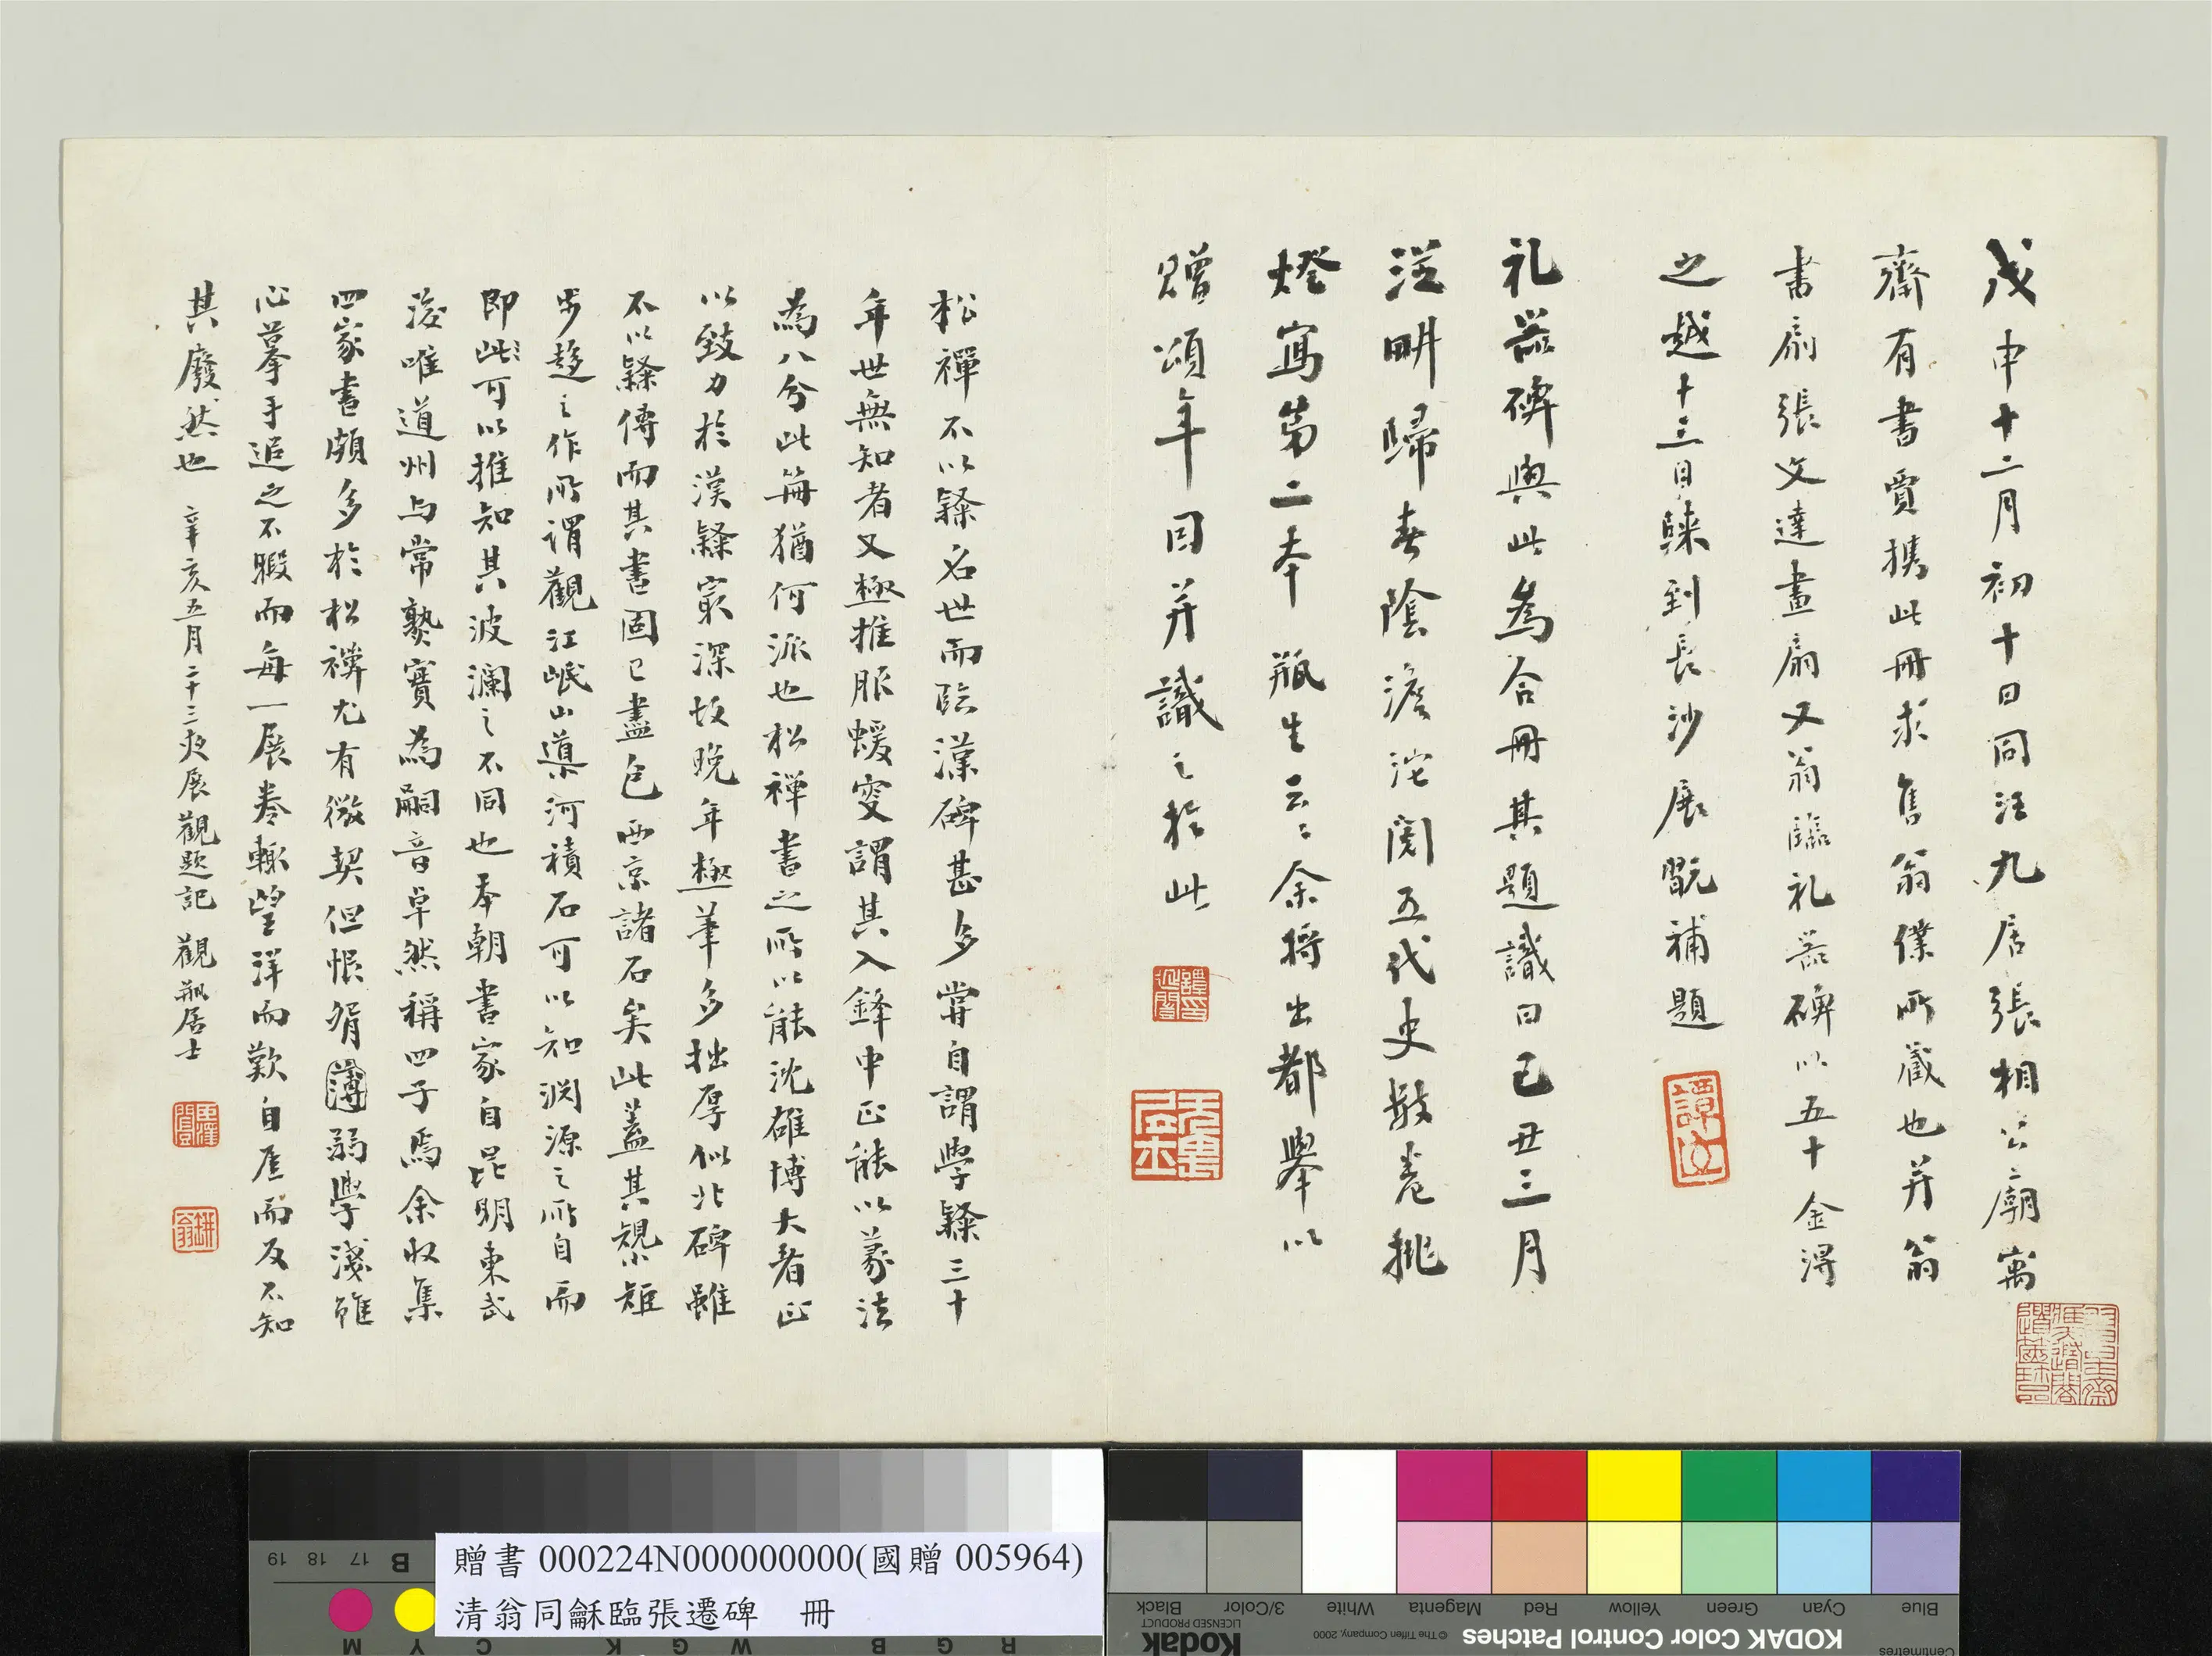 戊申十二月初十日同汪九居張相公廟寓
齋有書賈携此冊求售翁僕所藏也并翁
書扇張文達畫扇又翁臨礼器碑以五十金得
之越十三日歸到長沙展翫補題
礼器碑與此為合冊其題識曰己丑三月
泣畊歸春陰澹沱閱五代史數卷挑
燈寫第二本 瓶生云云余將出都舉以
贈頌年因并識之於此
松禪不以隸名世而臨漢碑甚多嘗自謂學隸三十
年世無知者又極推服蝯叟謂其入鋒中正能以篆法
為八分此冊猶何派也松禪書之所以能沈雄博大者正
以致力於漢隸寂深故晚年極筆多拙厚似北碑雖
不以隸傳而其書固已盡包西京諸石矣此蓋其規矩
步趨之作所謂觀江岷山導河積石可以知淵源之所自而
即此可以推知其波瀾之不同也本朝書家自昆明東武
後唯道州与常熟實為嗣音卓然稱四子焉余收集
四家書頗多於松禪尤有微契但恨弱學淺雖
心摹手追之不暇而每一展卷輒望洋而歎自厓而反不知
其廢然也 辛亥五月二十三夜展觀題記 觀瓶居士
贈書 000224N000000000(國贈 005964)
清翁同龢臨張遷碑 冊
19 18 17 B
M Y C K G W G B R
Black 3/Color White Magenta Red Yellow Green Cyan Blue
Kodak LICENSED PRODUCT © The Tiffen Company, 2000 KODAK Color Control Patches Centimetres